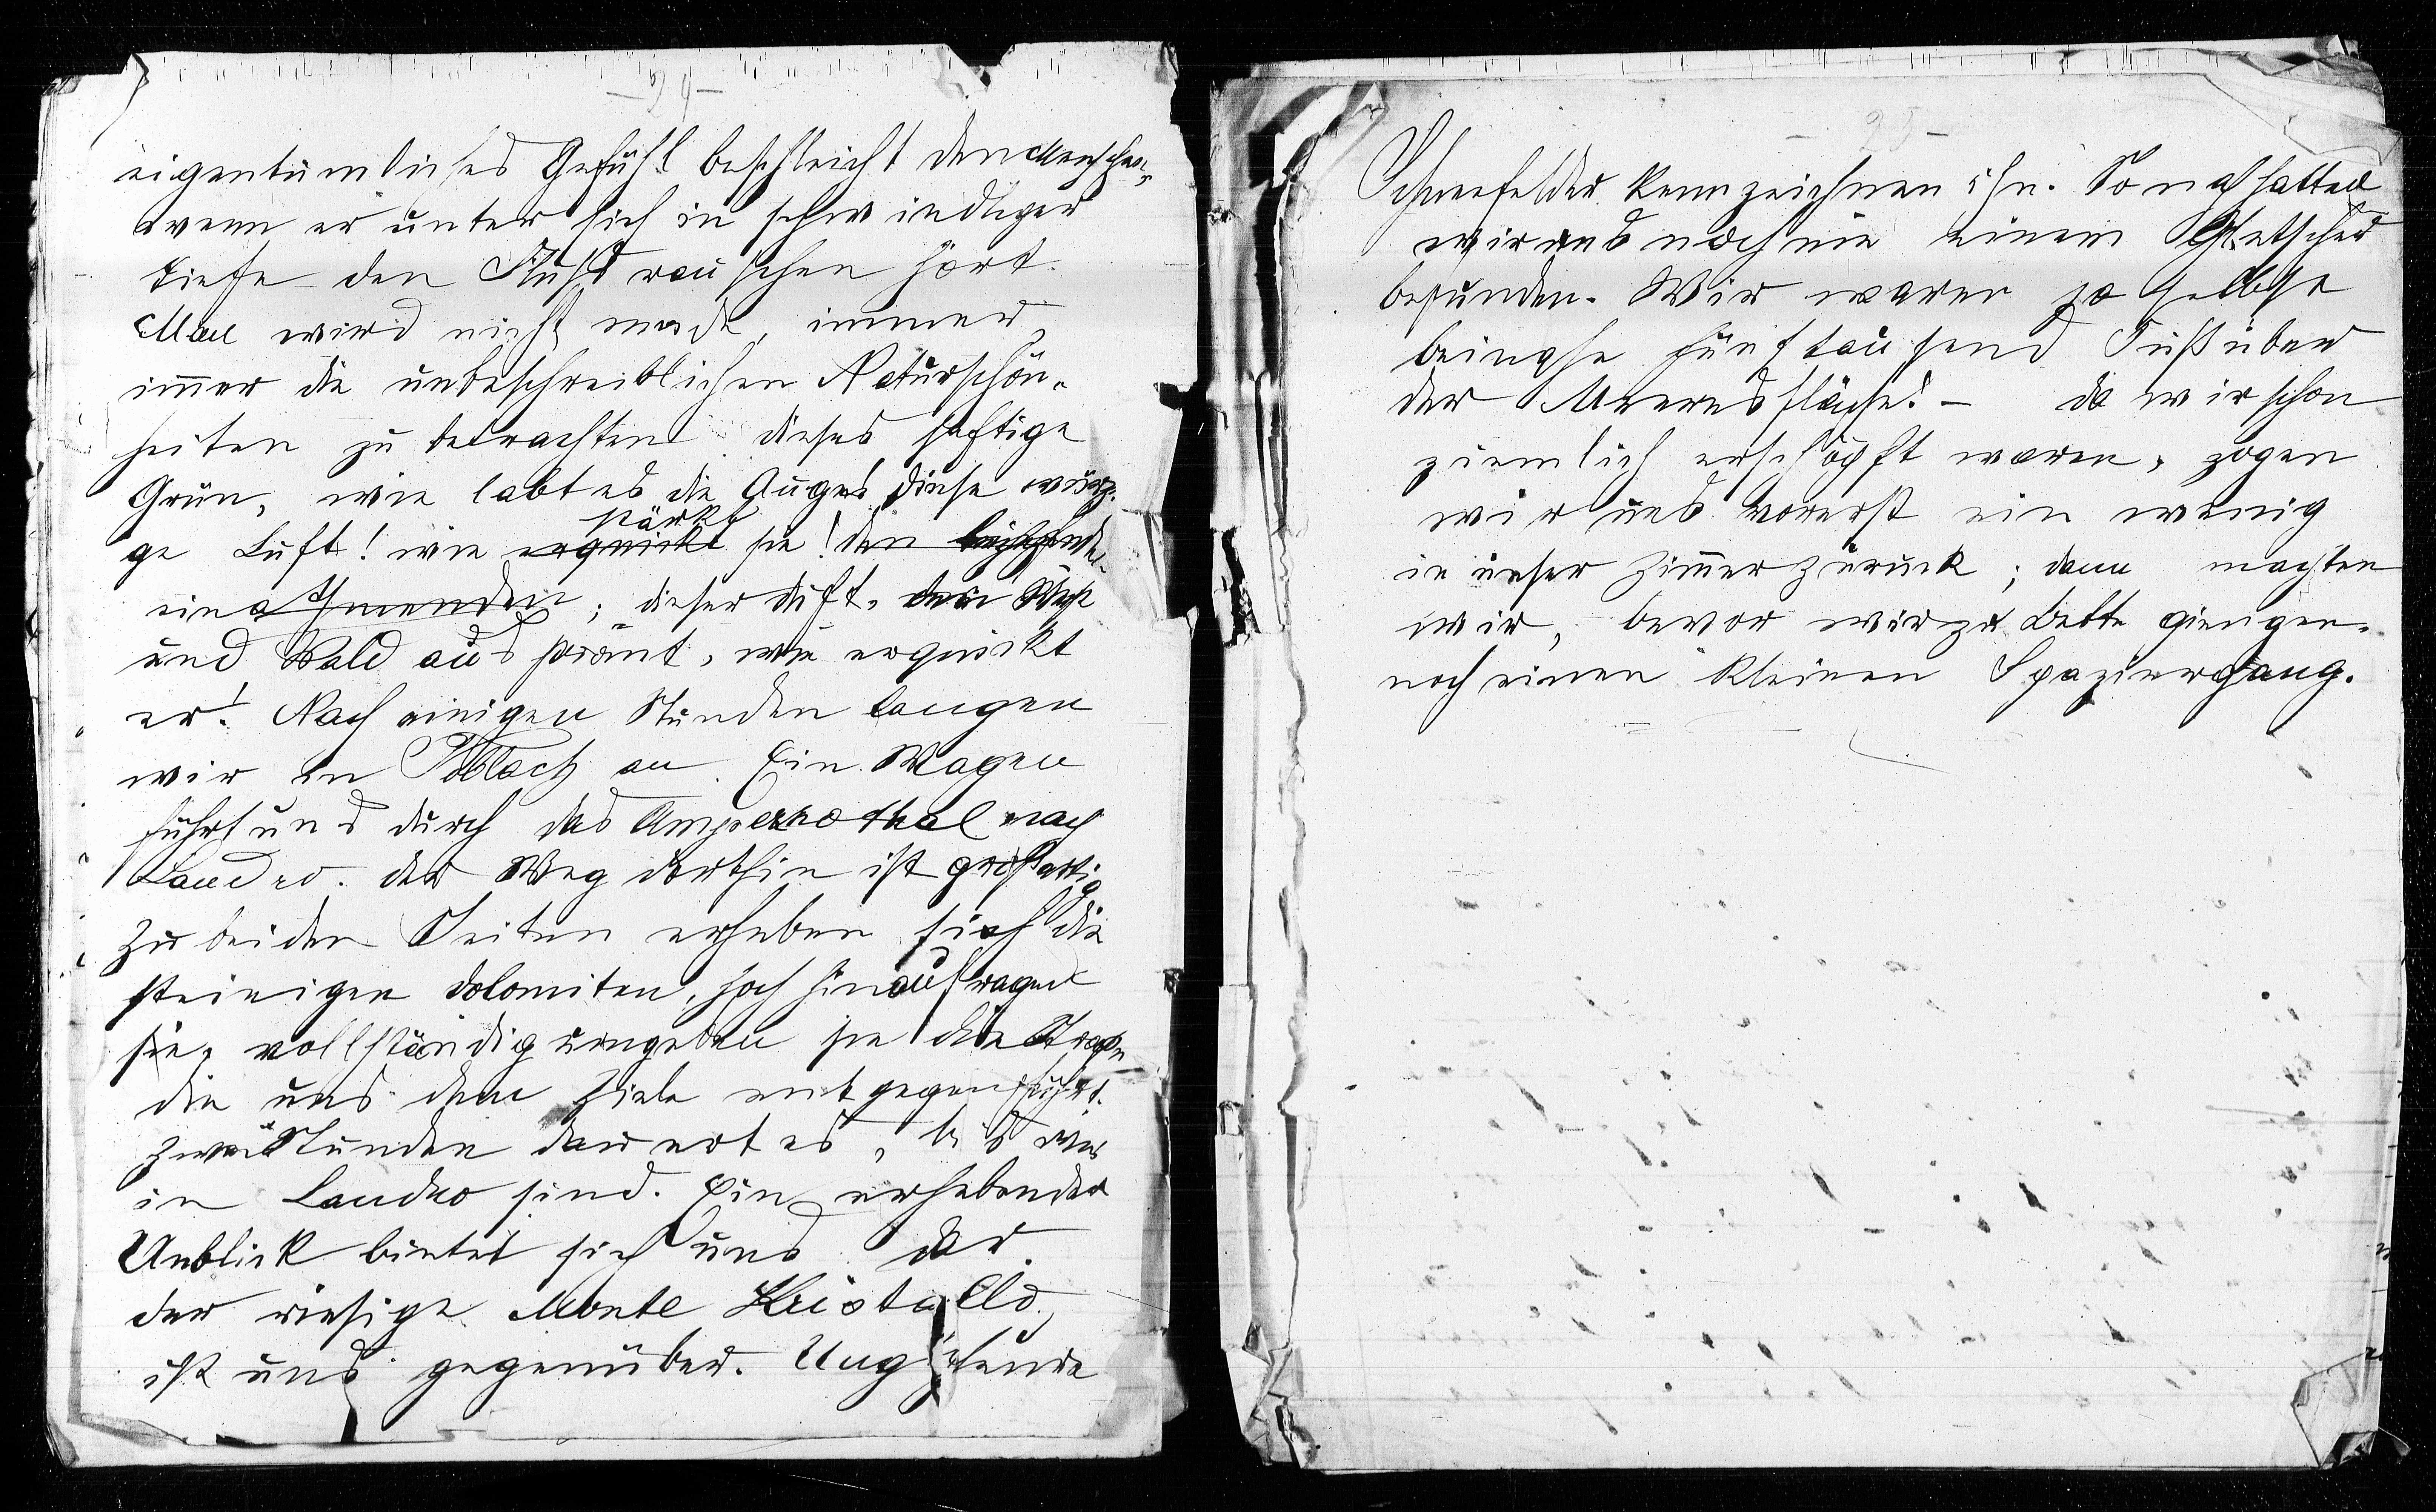 -24-
eigentümliches Gefühl beschleicht den Menschen,
wenn er unter sich in schwindliger
Tiefe den Fluß rauschen hört.
Man wird nicht müde, immer,
im̄er die unbeschreiblichen Naturschön-
heiten zu betrachten dieses saftige
Grün, wie labt es die Augen! diese würz.
stärkt
ge Luft! wie erquickt sie! den
einathmenden; dieser Duft, den Wiese
und Wald ausströmt, wie erquickt
er! Nach einigen Stunden langen
wir in Toblach an. Ein Wagen
führt uns durch das Ampezzothal nach
Landro. der Weg dorthin ist großartig
Zu beiden Seiten erheben sich die
steinigen Dolomiten, hoch hinauf ragen
sie, vollständig umgeben sie die Straße
die uns dem Ziele entgegenführt.
Zwei Stunden dauert es, bis wir
in Landro sind. Ein erhebender
Anblick bietet sich uns dar.
der riesige Monte Kristallo,
ist uns gegenüber. Ungeheure
-25-
Schneefelder kennzeichnen ihn. So nah hatten
wir uns noch nie einem Gletscher
befunden. Wir waren ja selbst
beinahe fünftausend Fuß über
der Meeresfläche! - da wir schon
ziemlich erschöpft waren, zogen
wir uns vorerst ein wenig
in unser Zim̄er zurück; dann machten
wir, bevor wir zu Bette giengen,
noch einen kleinen Spaziergang.